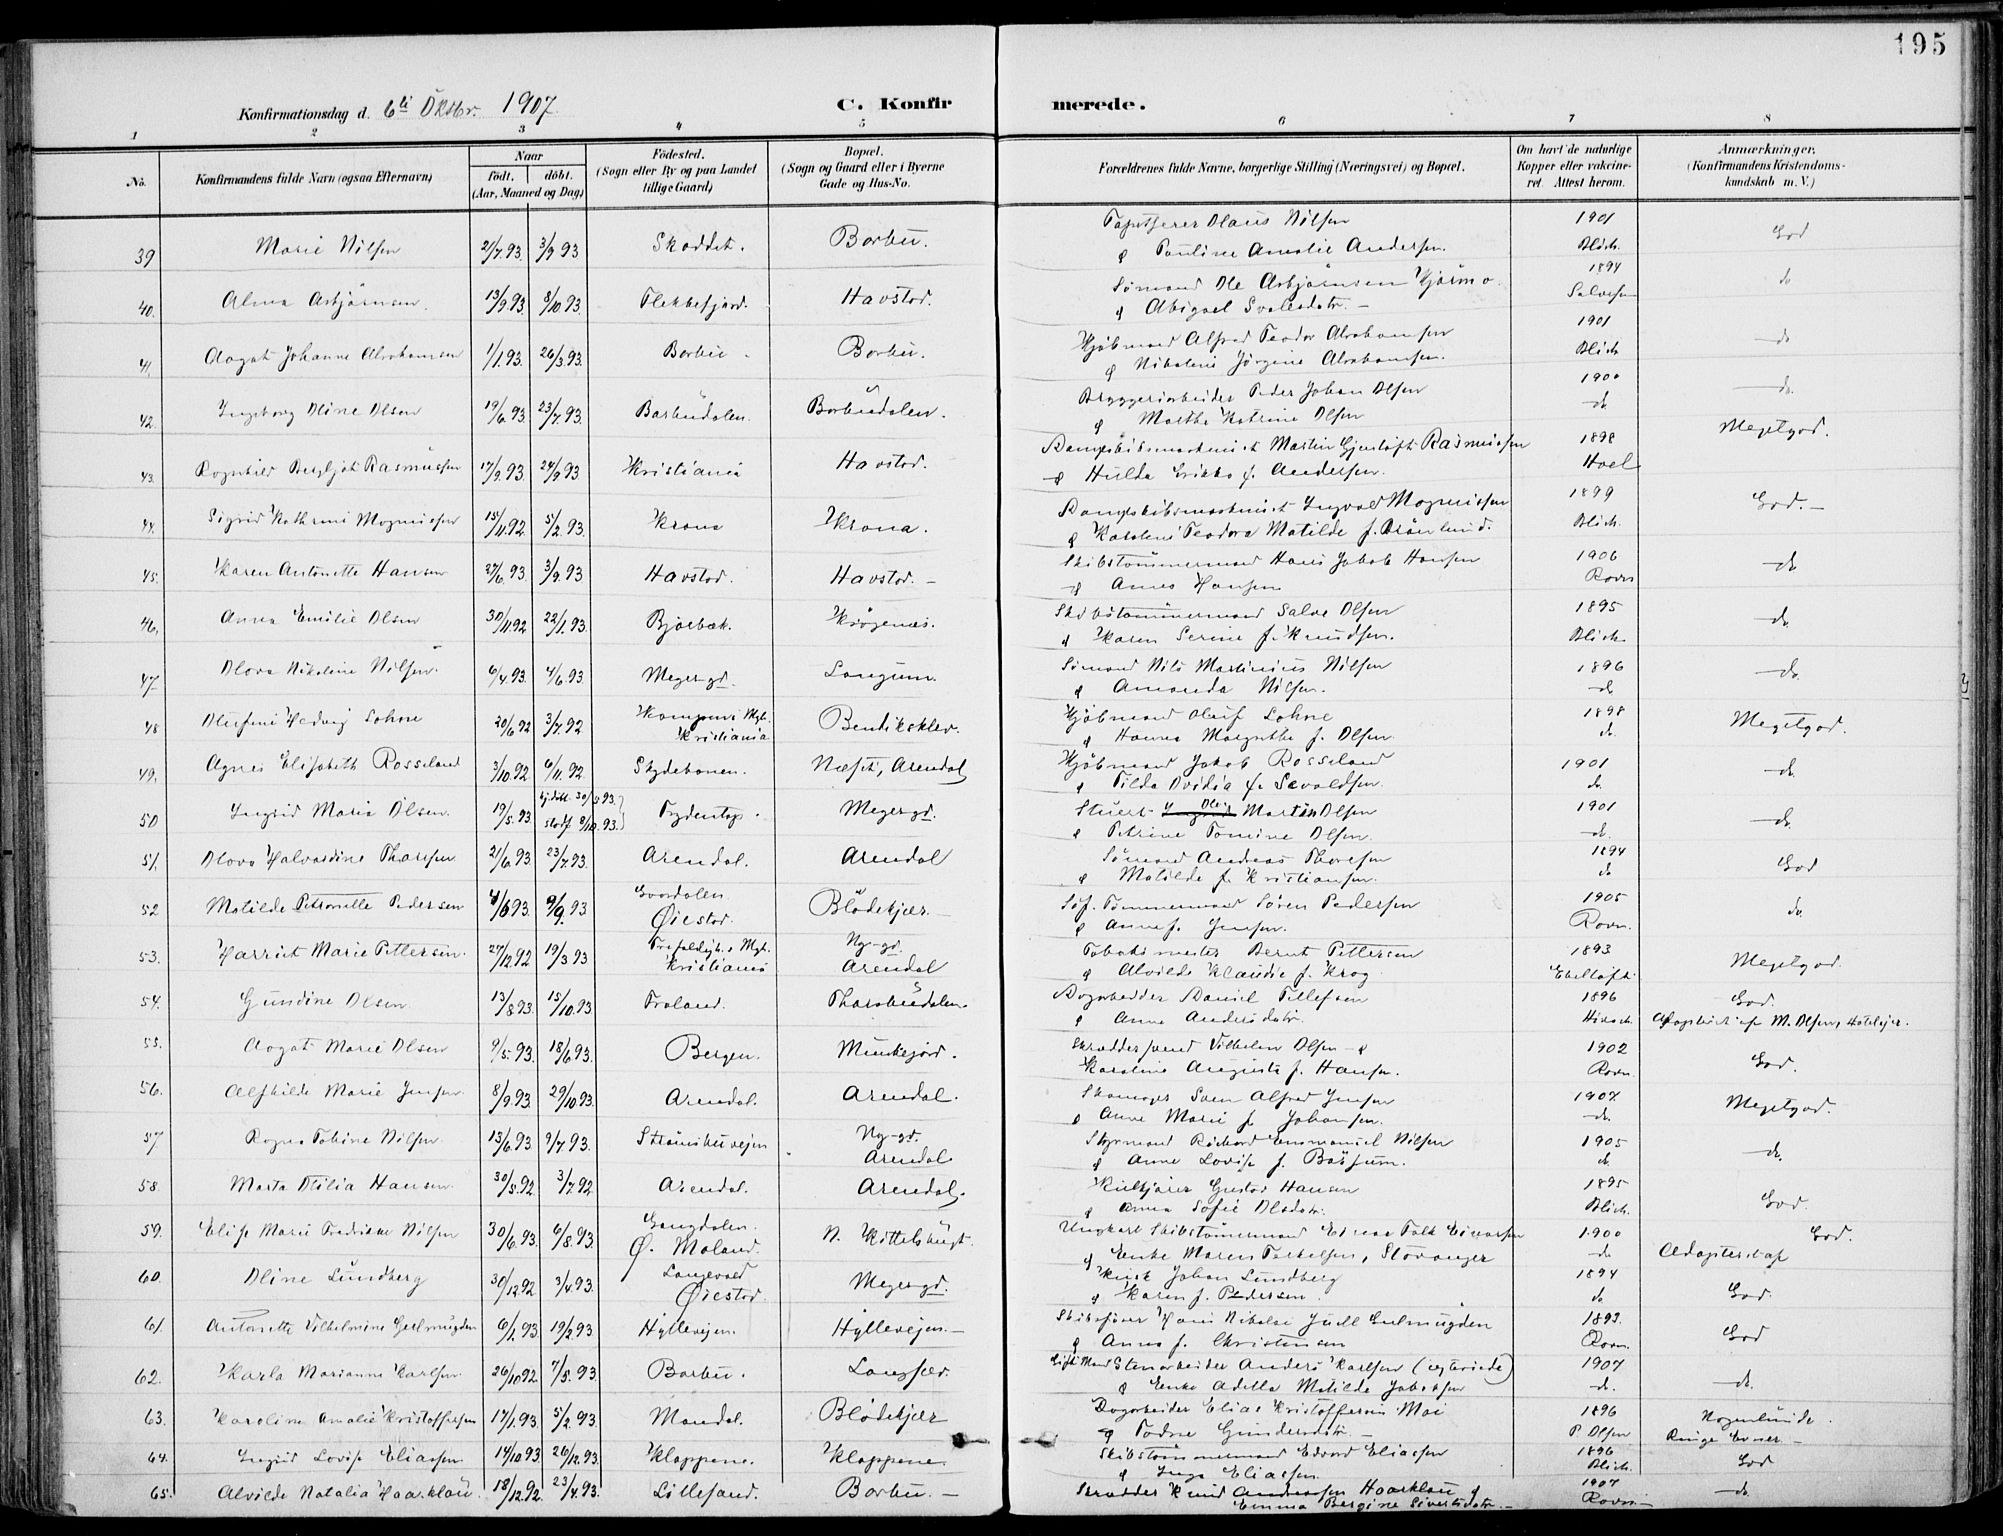 195
Konfirmationsdag d. 6ti Oktbr. 1907.
C. Konfirmerede.
1 2 3 4 5 6 7 8
No.
Konfirmandens fulde Navn (ogsaa Efternavn)
Naar
födt. döbt.
(Aar, Maaned og Dag)
Födested.
(Sogn eller By og paa Landet
tillige Gaard)
Bopæl.
(Sogn og Gaard eller i Byerne
Gade og Hus-No.
Forældrenes fulde Navne, borgerlige Stilling (Næringsvei) og Bopæl.
Om havt de naturlige
Kopper eller vakcine-
ret Attest herom.
Anmærkninger,
(Konfirmandens Kristendoms-
kundskab m. V.)
39 Marie Nilsen 2/7.93. 3/9 93 Barbu. Olaus Nilsen 1901 God
& Pauline Amalie Andersen. Blich.
40. Alma Asbjørnsen 13/9.93. 8/10.93. Flekkefjord. Havstad. Sømand Ole Asbjørnsen 1894 do
& Abigael Salvesen
41. Aagot Johanne Abrahamsen 1/1.93. 26/3.93. Barbu. Barbu. Kjøbmand Alfred Teodor Abrahamsen 1901 do
& Nikoline Jørgine Abrahamsen. Blich
42. Ingeborg Oline Olsen 19/6.93. 23/7.93. Barbudalen. Barbudalen. Bryggeriarbeider Peder Johan Olsen 1900 do.
& Marthe Katrine Olsen do
43. Ragnhild Bergljot Rasmussen 17/9.93. 24/9.93. Kristiania Havstad. Dampskibsmaskinist Martin Rasmussen 1898 Megetgod.
& Hulda Erikka f. Andersen. Hoel
44. Sigrid Kathrine Magnussen 15/11.92. 5/2.93. Krana Krana. Dampskibsmaskinist Ingvald Magnussen 1899 God.
& Karoline Teodora Matilde f. Grönlund. Blich.
45. Karen Antonette Hansen 27/6.93. 3/9.93 Havstad. Havstad. Skibstømmermand Hans Jakob Hansen 1906 do
& Anna Hansen Ravn
46. Anna Emilie Olsen 30/11.92 22/1.93. Bjørbæk. Krøgenes. Skibstømmermand Salve Olsen 1895 do.
& Karen Serine f. Knudsen. Blich.
47 Olava Nikoline Nilsen. 6/4.93. 4/6.93. Meyer-gd. Langum. Sømand Nils Martinius Nilsen 1896 do.
& Amanda Nilsen. do
48 Olufine Hedvig Lohne 20/6.92 3/7.92 Kampens Mgh. Kristiania Bendiksklev. Kjøbmand Oluf Lohne 1898 Megetgod.
& Hanna Margrethe f. Olsen do.
49. Agnes Elisabeth Rosseland 3/10.92. 6/11.92. Skydebanen. Næset, Arendal Kjøbmand Jakob Rosseland 1901 do.
& Tilda Ovidia f. Sevaldsen. do.
50 Ingrid Marie Olsen. 19/5.93. hj.döbt 30/5.93. stadf 8/10.93. Meyer-gd. Stuert Martin Olsen 1901 do.
& Petrine Tomine Olsen. do.
51. Olava Halvardine Thorsen 21/6.93 23/7.93. Arendal. Arendal Sømand Andreas Thoresen 1894 God
& Matilde f. Kristiansen. do
52 Matilde Petronelle Pedersen 4/6 93. 9/9.93 Øiestad. Blødekjær. Tømmermand Søren Pedersen 1905 do.
& Anna f. Jensen. Ravn.
53. Harriet Marie Pettersen. 27/12.92 19/3.93 Trefoldigh.s Mgh. Kristiania Ny-gd. Arendal Tobaksmester Bernt Pettersen 1893 Megetgod.
& Alvilde Klaudia f. Krog Ebeltoft.
54. Gundine Olsen 13/8.93. 15/10.93. Froland. Tharsbudalen. Daniel Tellefsen 1896 God.
& Anne Andersdatr. Adopteret af M. Olsen, Hoteleier.
55. Aagot Marie Olsen 9/5.93. 18/6.93. Bergen. Munkejord. Skræddersvend Vilhelm Olsen & 1902 God.
Karoline Augusta f. Hansen. Ravn.
56. Alfhilde Marie Jensen. 8/9.93. 29/10.93. Arendal. Arendal. Skomager Sven Alfred Jensen 1907 Megetgod.
& Anne Marie f. Johansen. do.
57 Ragna Tobine Nilsen. 13/6.93 9/7.93. Strömsbuveien Ny-gd. Arendal Styrmand Rikard Emmanuel Nilsen 1905 do.
& Anne Lovise f. Bassum. do.
58. Marta Otilia Hansen. 30/5.92. 3/7.92 Arendal. Arendal. Gustav Hansen 1895 God.
& Anna Sofie Olsdatr. Blich.
59. Elise Marie Fredrikke Nilsen 30/6.93. 6/8.93. Langdalen. Ø. Moland. N. Kittelsbugt. Ungkarl Skibstømmermand Einar Falk Einarsen 1900 God.
& Enke Maren Terkelsen, Stavanger do Adopteret af
60. Oline Lundberg 30/12.92 3/4.93. Langevold Øiestad. Meyer-gd. Kusk Johan Lundberg 1894 God.
& Karen f. Pedersen. do
61. Antonette Vilhelmine Gulmugden 6/1.93. 19/2.93 Hylleveien. Hylleveien. Skibsfører Hans Nikolai Juell Gulmugden 1893. God
& Anna f. Christensen Ravn.
62. Karla Marianne Karlsen 26/10.92. 7/5.93. Barbu. Langsæv. Gift Mand Stenarbeider Anders Karlsen 1907 do.
& Enke Adella Matilde Jakobsen do.
63. Karoline Amalie Kristoffersen 17/1.93. 5/2.93. Mandal. Blødekjær Dagarbeider Elias Kristoffersen Moi 1896 Nogenlunde.
& Todne Gundersdatr. P. Olsen Ringe Evner.
64. Ingrid Lovise Eliassen 14/10.93 26/12.93. Kloppene. Kloppene. Skibstømmermand Edvard Eliassen 1896 God
& Inga Eliassen Blich.
65. Alvilde Natalia Haarklau. 18/12.92. 23/4.93. Lillesand. Barbu. Skrædder Knud Andreassen Haarklau & 1907 do.
Emma Bergine Sivertsdatr. Ravn